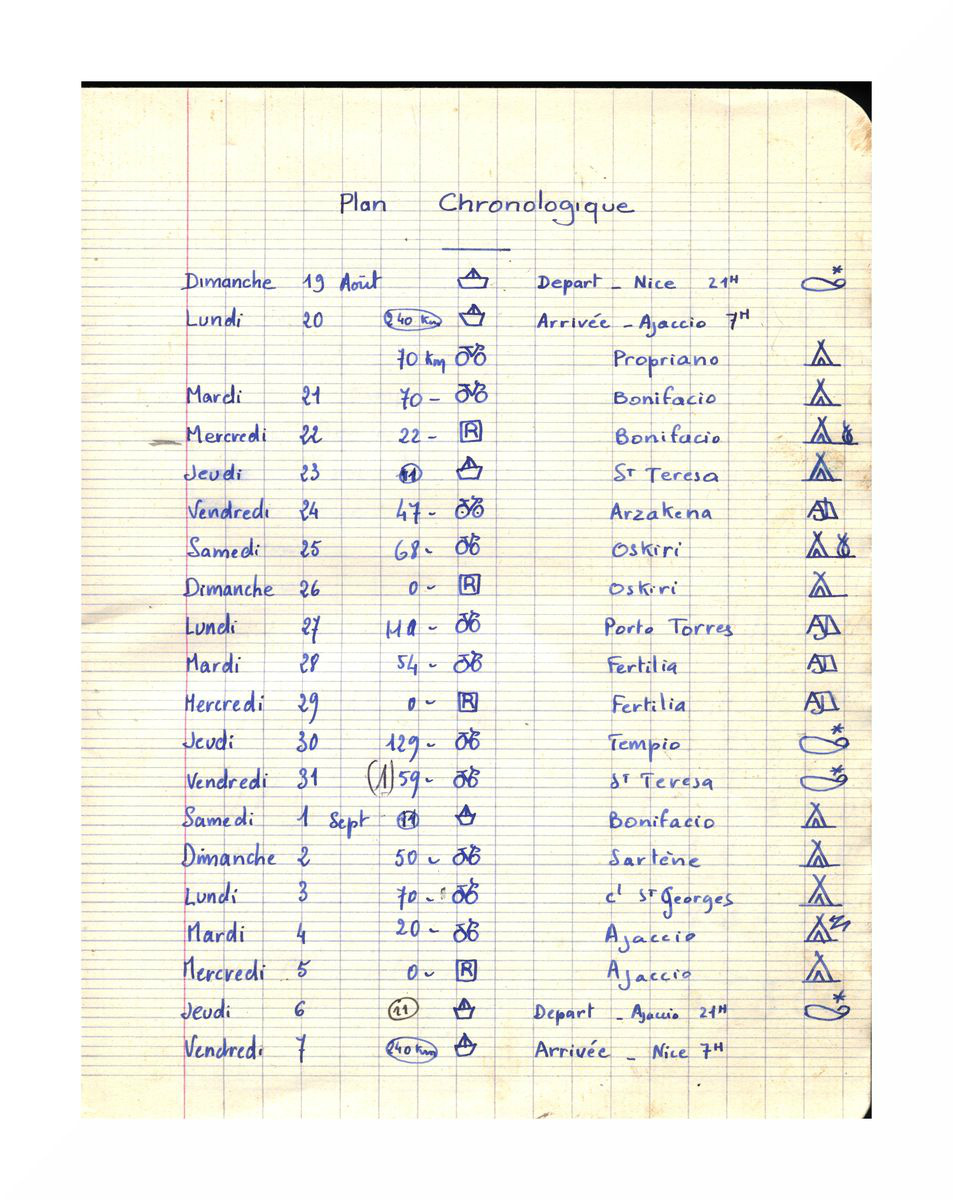 Plan Chronologique
Dimanche 19 Août Depart - Nice 21H
Lundi 20 240 Km Arrivée - Ajaccio 7H
70 Km Propriano
Mardi 21 70 - Bonifacio
Mercredi 22 22 - R Bonifacio
Jeudi 23 11 St Teresa
Vendredi 24 47 - Arzakena AJ
Samedi 25 68 - Oskiri
Dimanche 26 0 - R Oskiri
Lundi 27 - Porto Torres AJ
Mardi 28 54 - Fertilia AJ
Mercredi 29 0 - R Fertilia AJ
Jeudi 30 129 - Tempio
Vendredi 31 (1) 59 - St Teresa
Samedi 1 Sept 11 Bonifacio
Dimanche 2 50 - Sartène
Lundi 3 70 - cl St Georges
Mardi 4 20 - Ajaccio
Mercredi 5 0 - R Ajaccio
Jeudi 6 11 Depart - Ajaccio 21H
Vendredi 7 240 Km Arrivée - Nice 7H